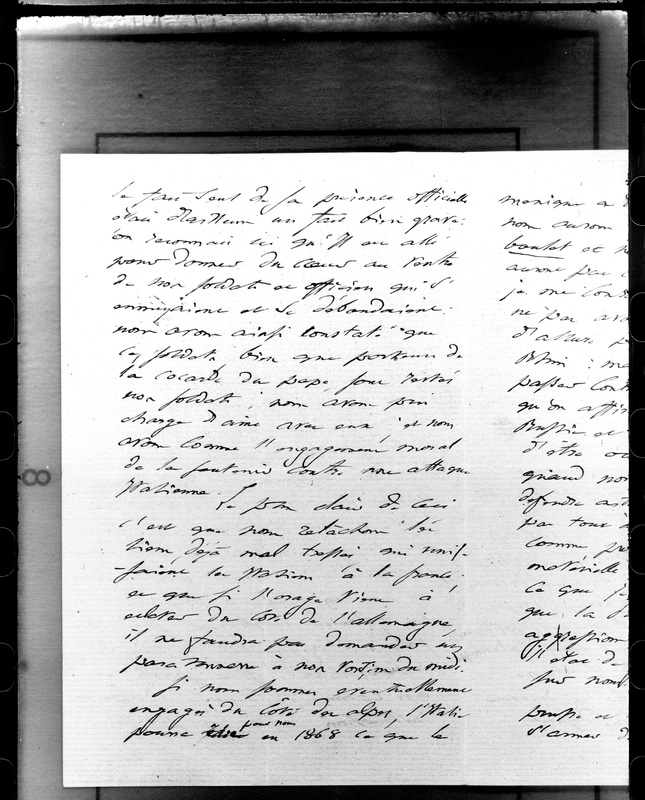 le fait seul de sa présence officielle
était d'ailleurs un fait bien grave:
on reconnait ici qu'il est allé
pour donner du cœur au ventre
de nos soldats et officiers qui s'
ennuyaient et se débandaient.
nous avons ainsi constaté que
ces soldats bien que porteurs de
la cocarde du pape, sont restés
nos soldats; nous avons pris
charge d'âme avec eux et nous
avons comme l'engagement moral
de les soutenir contre une attaque
italienne. Le plus clair de ceci
c'est que nous relâchons les
liens, déjà mal tressés qui unis-
-saient les Italiens à la france.
et que si l'orage vient à
éclater du côté de l'allemagne,
il ne faudra pas demander un
paratonnerre à nos voisins du midi.
Si nous sommes éventuellement
engagés du côté des alpes, l'Italie
pourra pour nous en 1868 ce que le
manique a
nous aurons
boulet et n
aurons pas
je me
ne pas avo
d'allure p
Rhin: me
passer cont
qu'on affi
Russie et
d'être
quand nou
défendre
par tous
comme pr
matérielle
ce que je
que la
aggression
l'état de
sur nous
prusse et
d'armer d